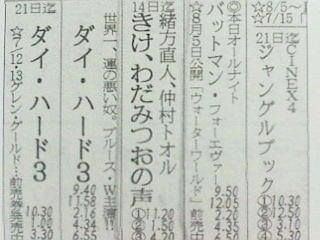 ☆8/5〜
☆7/15
21日迄
CINEX4
ジャングルブック
①10.30
②
③
④
◎本日オールナイト
バットマン・フォーエヴァー
9.50
12.05
2.20
☆8月5日公開「ウォーターワールド」前売中
14日迄
緒方直人、仲村トオル
きけ、わだみつおの声
11.20
1.50
世界一、運の悪い奴。ブルース・W主演!!
ダイ・ハード3
9.40
11.58
2.16
4.34
6.55
21日迄
ダイ・ハード3
10.30
1.00
3.30
☆7/12.13ゲレン・ゲールド…前売券発売中